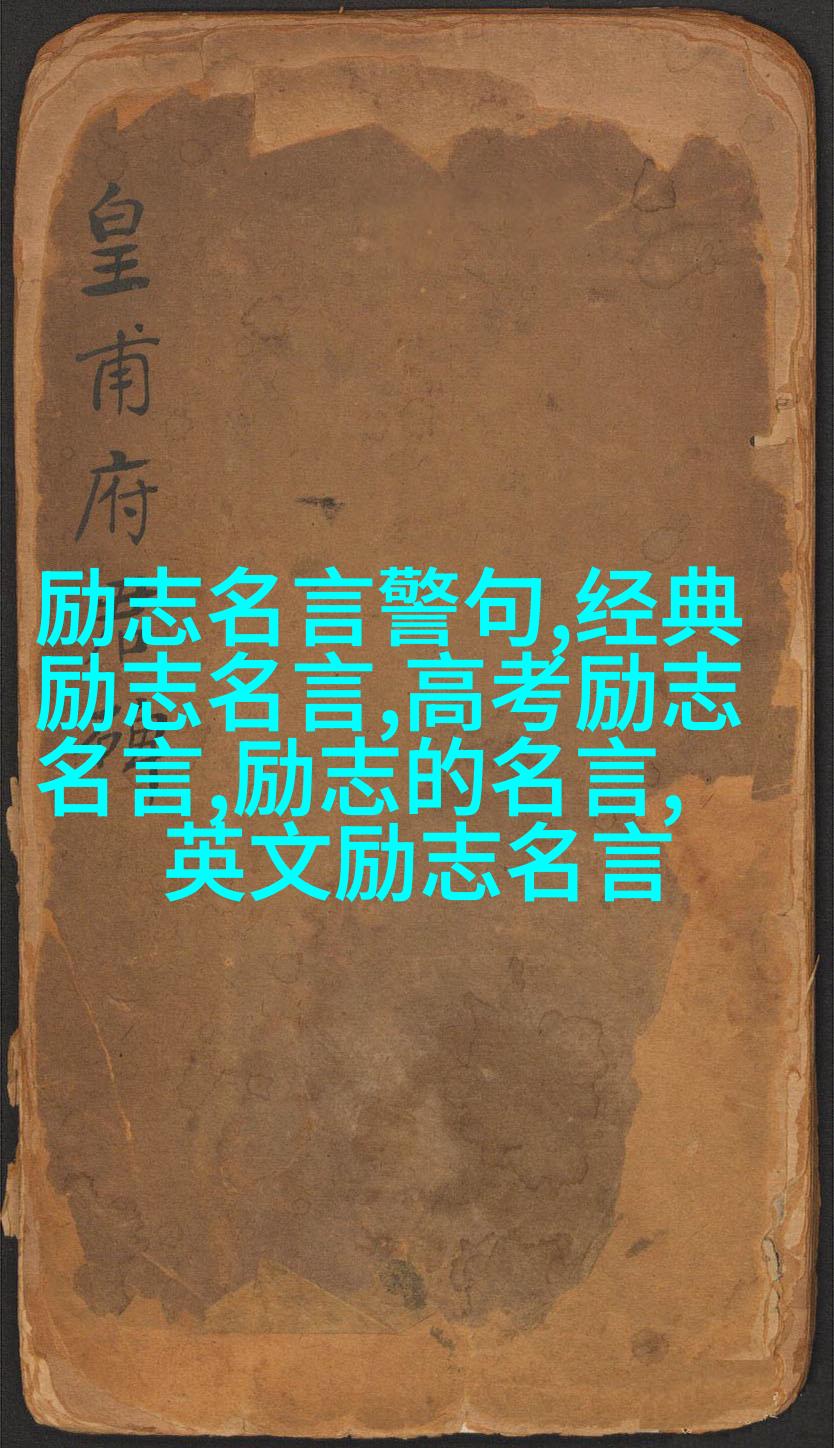 皇甫府君碑
励志名言警句,经典
励志名言,高考励志
名言,励志的名言,
英文励志名言